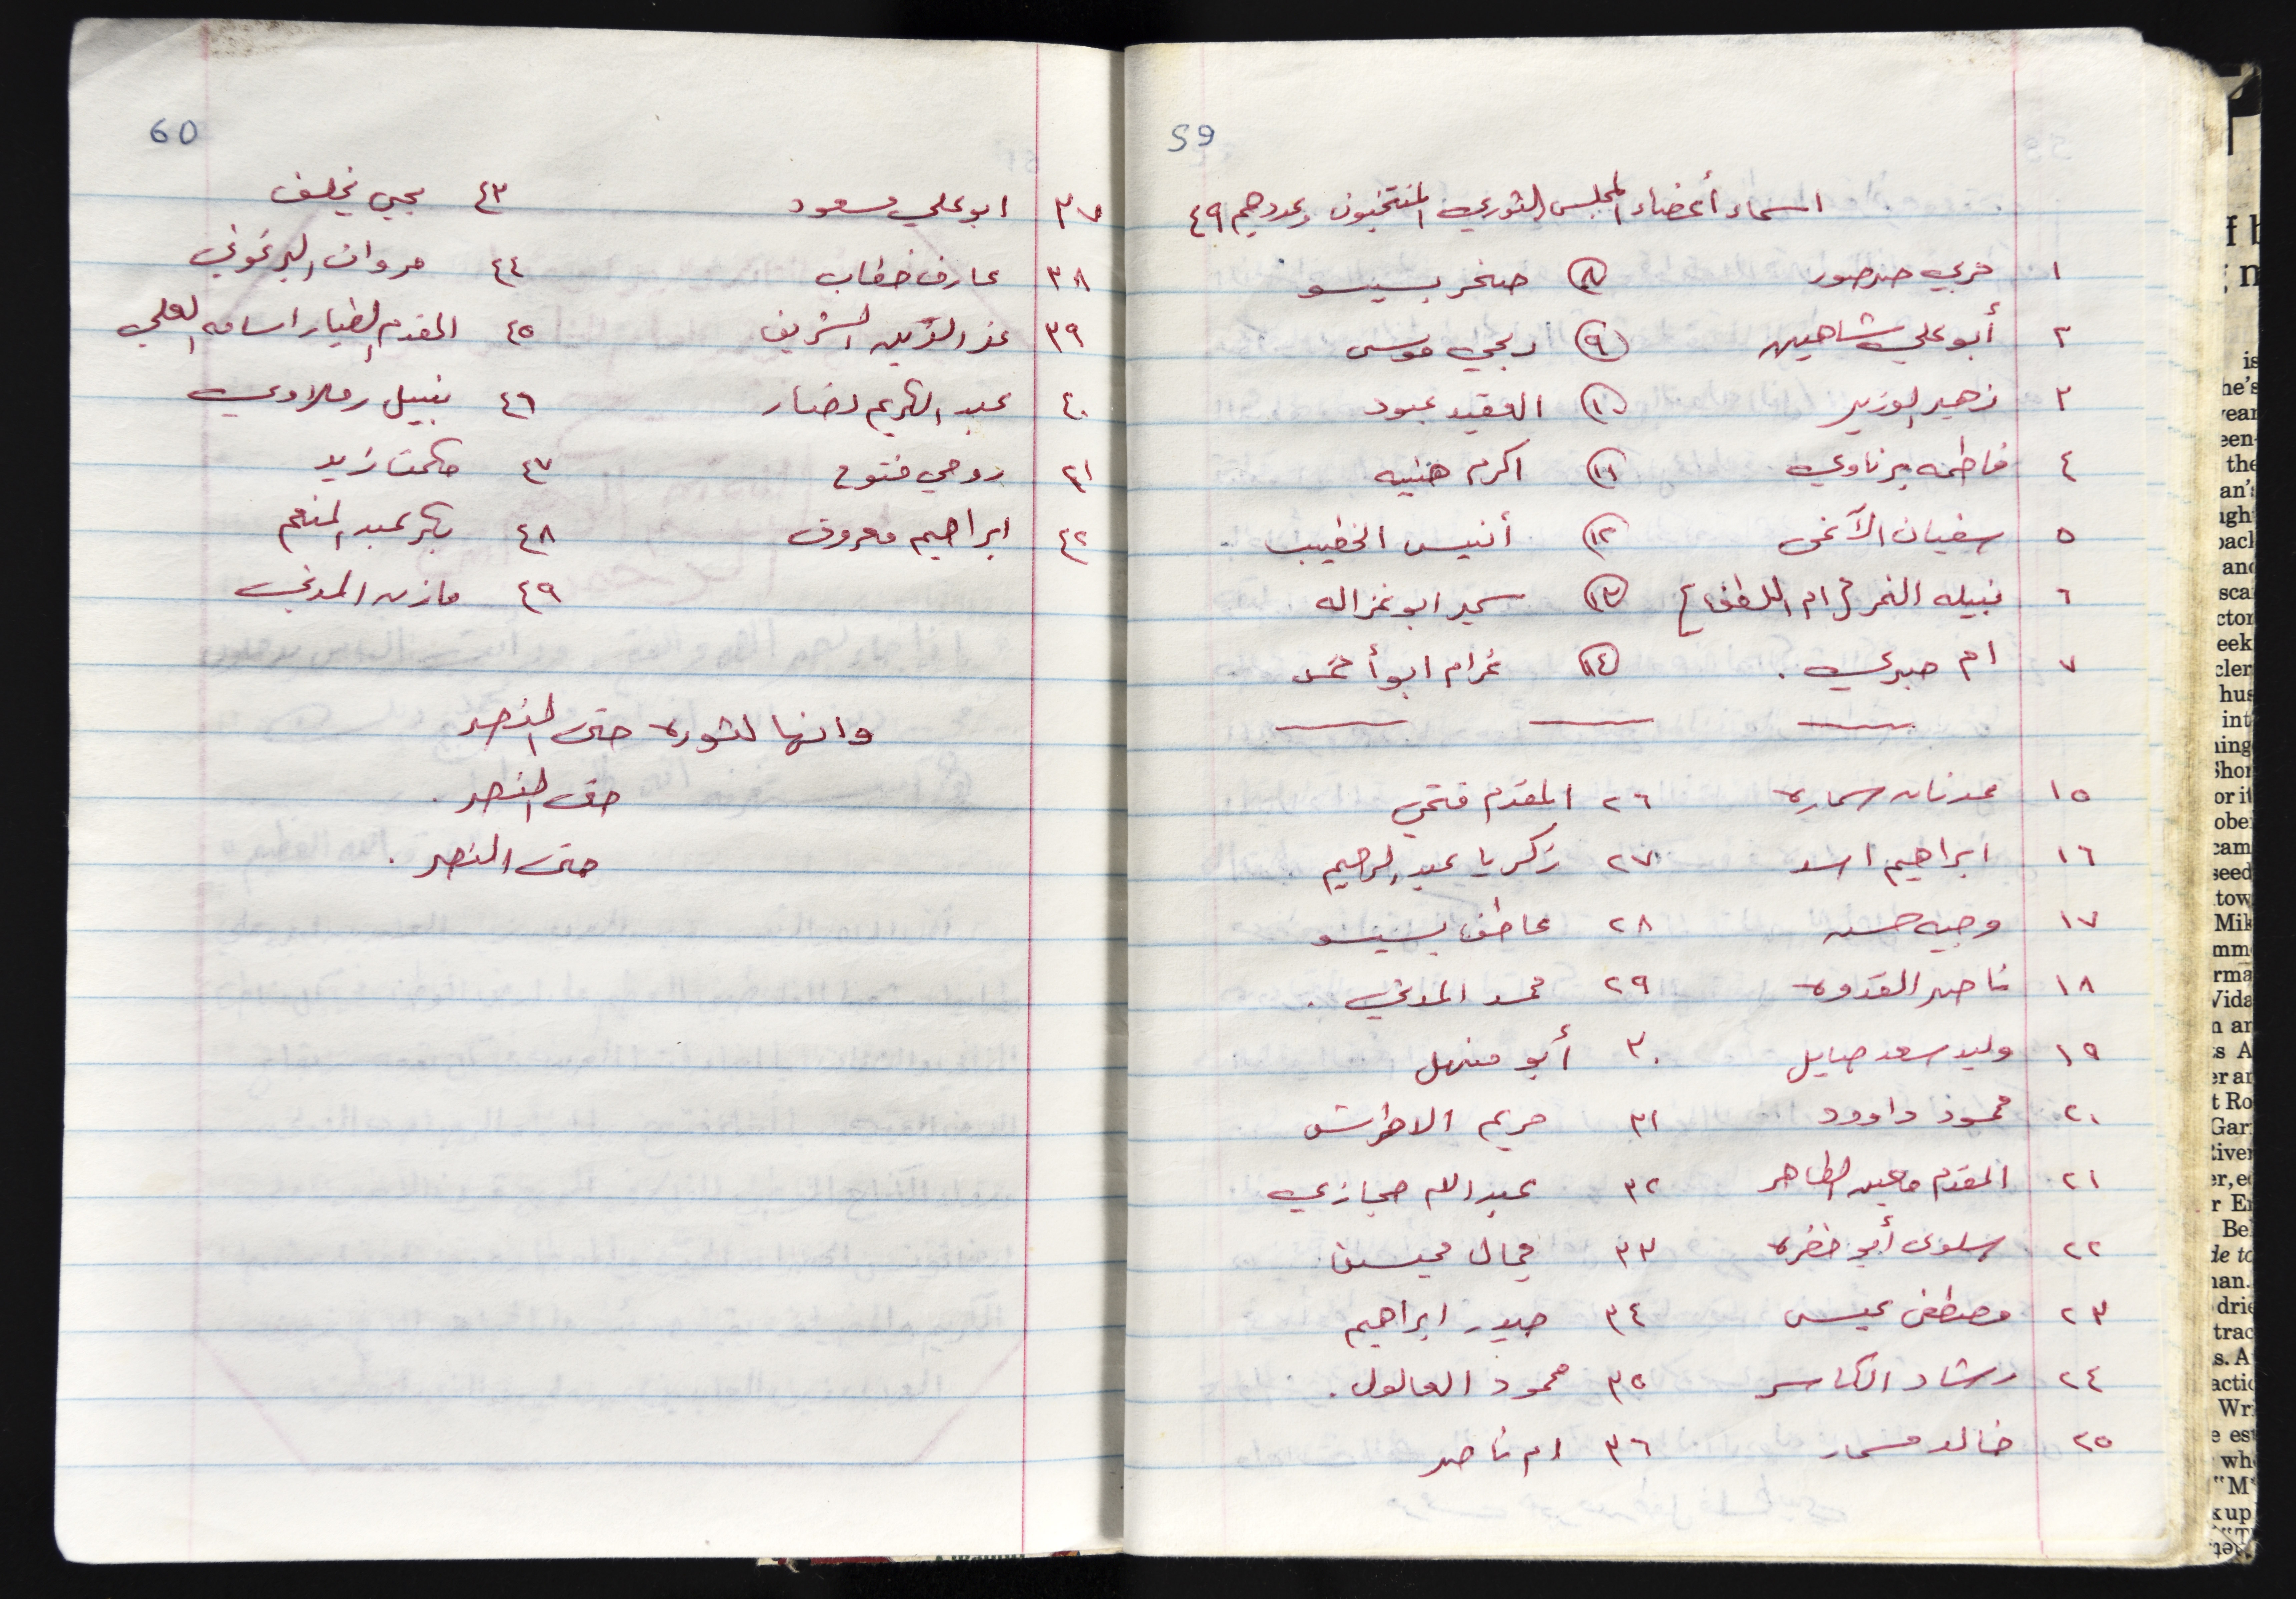 59
اسماء أعضاء المجلس الثوري المنتخبون وعددهم ٤٩
١ حربي صرصور ⑧ صخر بسيسو
٢ أبو علي شاهين ⑨ ربحي موسى
٣ زهير الوزير ⑩ العقيد عبود
٤ فاطمه برناوي ⑪ اكرم هنيه
٥ سفيان الآغى ⑫ أنيس الخطيب
٦ نبيله النمر ⑬ سمير ابو غزاله
٧ ام صبري . ⑭ غرام ابو أحمد
١٥ عدنان سماره ٢٦ المقدم فتحي
١٦ ابراهيم اسد ٢٧ زكريا عبد الرحيم
١٧ وجيه حسن ٢٨ عاطف بسيسو
١٨ ناصر القدوه ٢٩ محمد المدني .
١٩ وليد سعد صايل ٣٠ أبو منهل
٢٠ محمود داوود ٣١ مريم الاطرش
٢١ المقدم معين الطاهر ٣٢ عبد الاله حجازي
٢٢ سلوى أبو خضره ٣٣ جمال محيسن
٢٣ مصطفى عيسى ٣٤ حيدر ابراهيم
٢٤ رشاد الكاسر ٣٥ محمود العالول .
٢٥ خالد مسمار ٣٦ ام ناصر
60
٣٧ ابو علي مسعود ٤٣ يحيى يخلف
٣٨ عارف خطاب ٤٤ مروان البرغوثي
٣٩ عز الدين الشريف ٤٥ المقدم الطيار اسامه العلي
٤٠ عبد الكريم نصار ٤٦ نبيل رملاوي
٤١ روحي فتوح ٤٧ حكمت زيد
٤٢ ابراهيم معروف ٤٨ بكر عبد المنعم
٤٩ مازن المدني
وانها لثوره حتى النصر
حتى النصر .
حتى النصر .